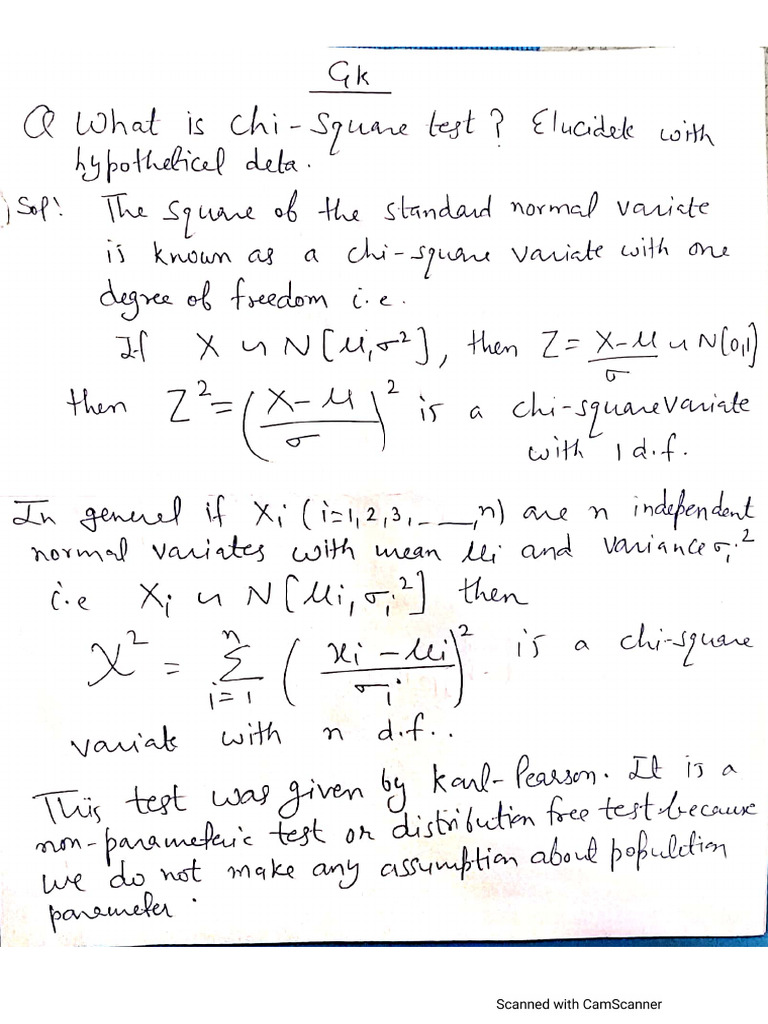 Gk
Q What is chi-square test? Elucidate with
hypothetical data.
Sol: The square of the standard normal variate
is known as a chi-square variate with one
degree of freedom i.e.
If X ~ N[μ, σ²], then Z = X-μ/σ ~ N(0,1)
then Z² = (X-μ/σ)² is a chi-square variate
with 1 d.f.
In general if Xi (i=1,2,3,_ __,n) are n independent
normal variates with mean μi and variance σi²
i.e Xi ~ N[μi, σi²] then
χ² = Σ i=1 n (xi-μi/σi)² is a chi-square
variate with n d.f..
This test was given by Karl-Pearson. It is a
non-parametric test or distribution free test because
we do not make any assumption about population
parameter.
Scanned with CamScanner